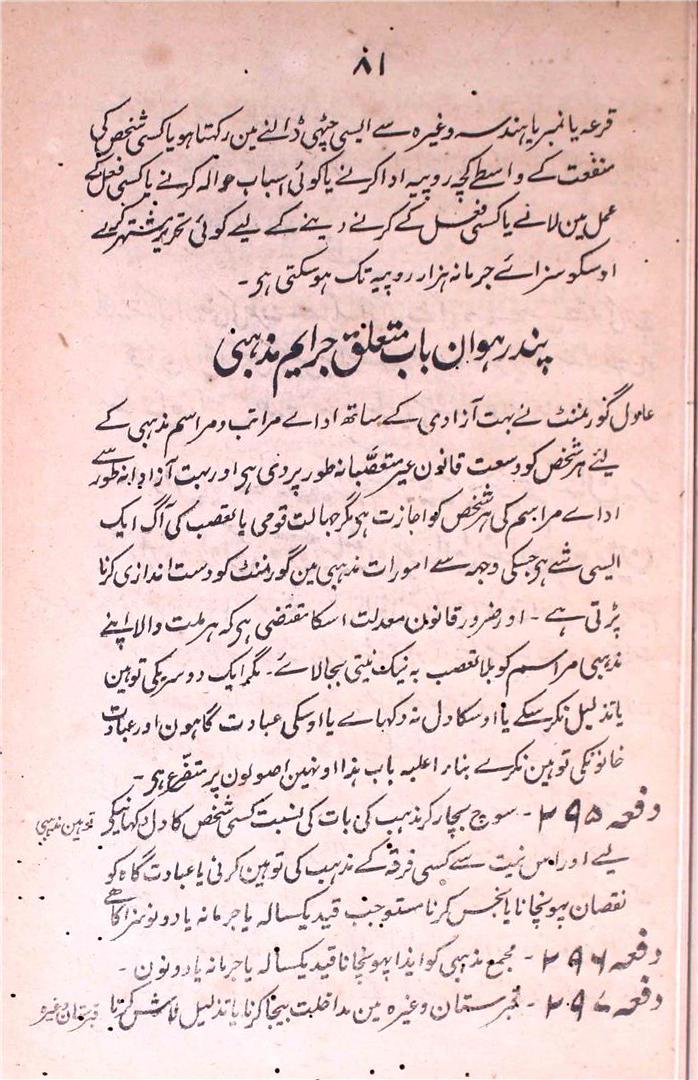 ۸۱
قرعہ یا نمبر یا ہندسہ وغیرہ سے ایسی چٹھی ڈالنے مین رکہتا ہو یا کسی شخص کی
منفعت کے واسطے کچہ روپیہ ادا کرنے یا کوئی اسباب حوالہ کرنے یا کسی فعل کے
عمل مین لانے یا کسی فعل کے کرنے دینے کے لیے کوئی تحریر مشتہر کرے
اوسکو سزائے جرمانہ ہزار روپیہ تک ہو سکتی ہی ۔
پندرہوان باب متعلق جرایم مذہبی
عادل گورنمنٹ نے بہت آزادی کے ساتھ اداے مراتب و مراسم مذہبی کے
لیئے ہر شخص کو وسعت قانون غیر متعصّبانہ طور پر دی ہی اور بہت آزادانہ طور سے
اداے مراسم کی ہر شخص کو اجازت ہی مگر جہالت قومی یا تعصب کی آگ ایک
ایسی شے ہی جسکی وجہہ سے امورات مذہبی مین گورنمنٹ کو دست اندازی کرنا
پڑتی ہے ۔ اور ضرور قانون معدلت اسکا مقتضی ہی کہ ہر ملت والا اپنے
مذہبی مراسم کو بلا تعصب بہ نیک نیتی بجا لاے ۔ مگر ایک دوسریکی توہین
یا تذلیل نکر سکے یا اوسکا دل نہ دکہاے یا اوسکی عبادت گاہون اور عبادت
خانونکی توہین نکرے بناءً علیہ باب ہذا اونہین اصولون پر متفرع ہی ۔
دفعہ ۲۹۵ ۔ سوچ بچار کر مذہب کی بات کی نسبت کسی شخص کا دل دکہانیکے توہین مذہبی
لیے اور اس نیت سے کسی فرقہ کے مذہب کی توہین کرنی یا عبادت گاہ کو
نقصان پہونچانا یا نجس کرنا مستوجب قید یکسالہ یا جرمانہ یا دونو سزا کا ہے
دفعہ ۲۹۶ ۔ مجمع مذہبی کو ایذا پہونچانا قید یکسالہ یا جرمانہ یا دونون ۔
دفعہ ۲۹۷ ۔ قبرستان وغیرہ مین مداخلت بیجا کرنا یا تذلیل لاش کرنا قبرستان وغیرہ